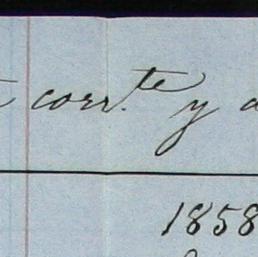 corr.te y
1858